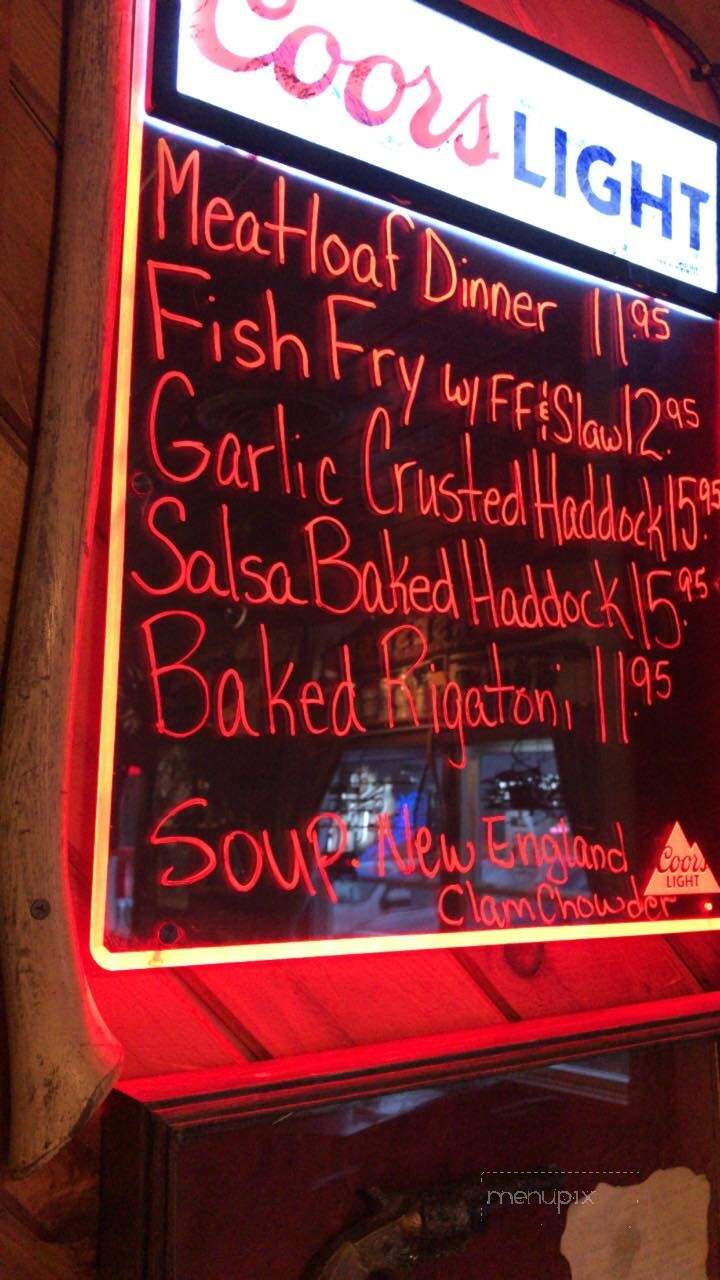 Coors LIGHT
Meatloaf Dinner 11.95
Fish Fry w/ FF & Slaw 12.95
Garlic Crusted Haddock 15.95
Salsa Baked Haddock 15.95
Baked Rigatoni 11.95
Soup. New England
Clam Chowder
Coors
LIGHT
menupix